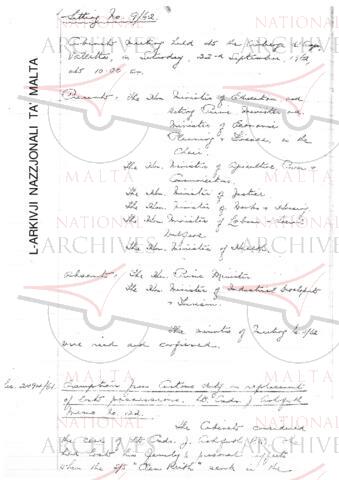 Sitting No. 9/62
Cabinet Meeting held at the Auberge d'Aragon
Valletta, on Saturday, 22nd September, 1962
at 10.00 a.m.
Present: The Hon. Minister of Education and
Acting Prime Minister and
Minister of Economic
Planning & Finance, in the
Chair.
The Hon. Minister of Agriculture, Power &
Communications.
The Hon. Minister of Justice
The Hon. Minister of Works & Housing
The Hon. Minister of Labour & Social
Welfare
The Hon. Minister of Health.
Absent: The Hon. Prime Minister
The Hon. Minister of Industrial Development
& Tourism.
The minutes of Meeting No. 8/62
were read and confirmed.
Exemption from Customs duty on replacement
of lost possessions. Lt. Cdr. J.
Memo No. 122.
The Cabinet considered
the case of Lt. Cdr. J.
had lost his family's personal effects
when the s/s sank in the
L-ARKIVJI NAZZJONALI TA' MALTA
MALTA
NATIONAL
ARCHIVES